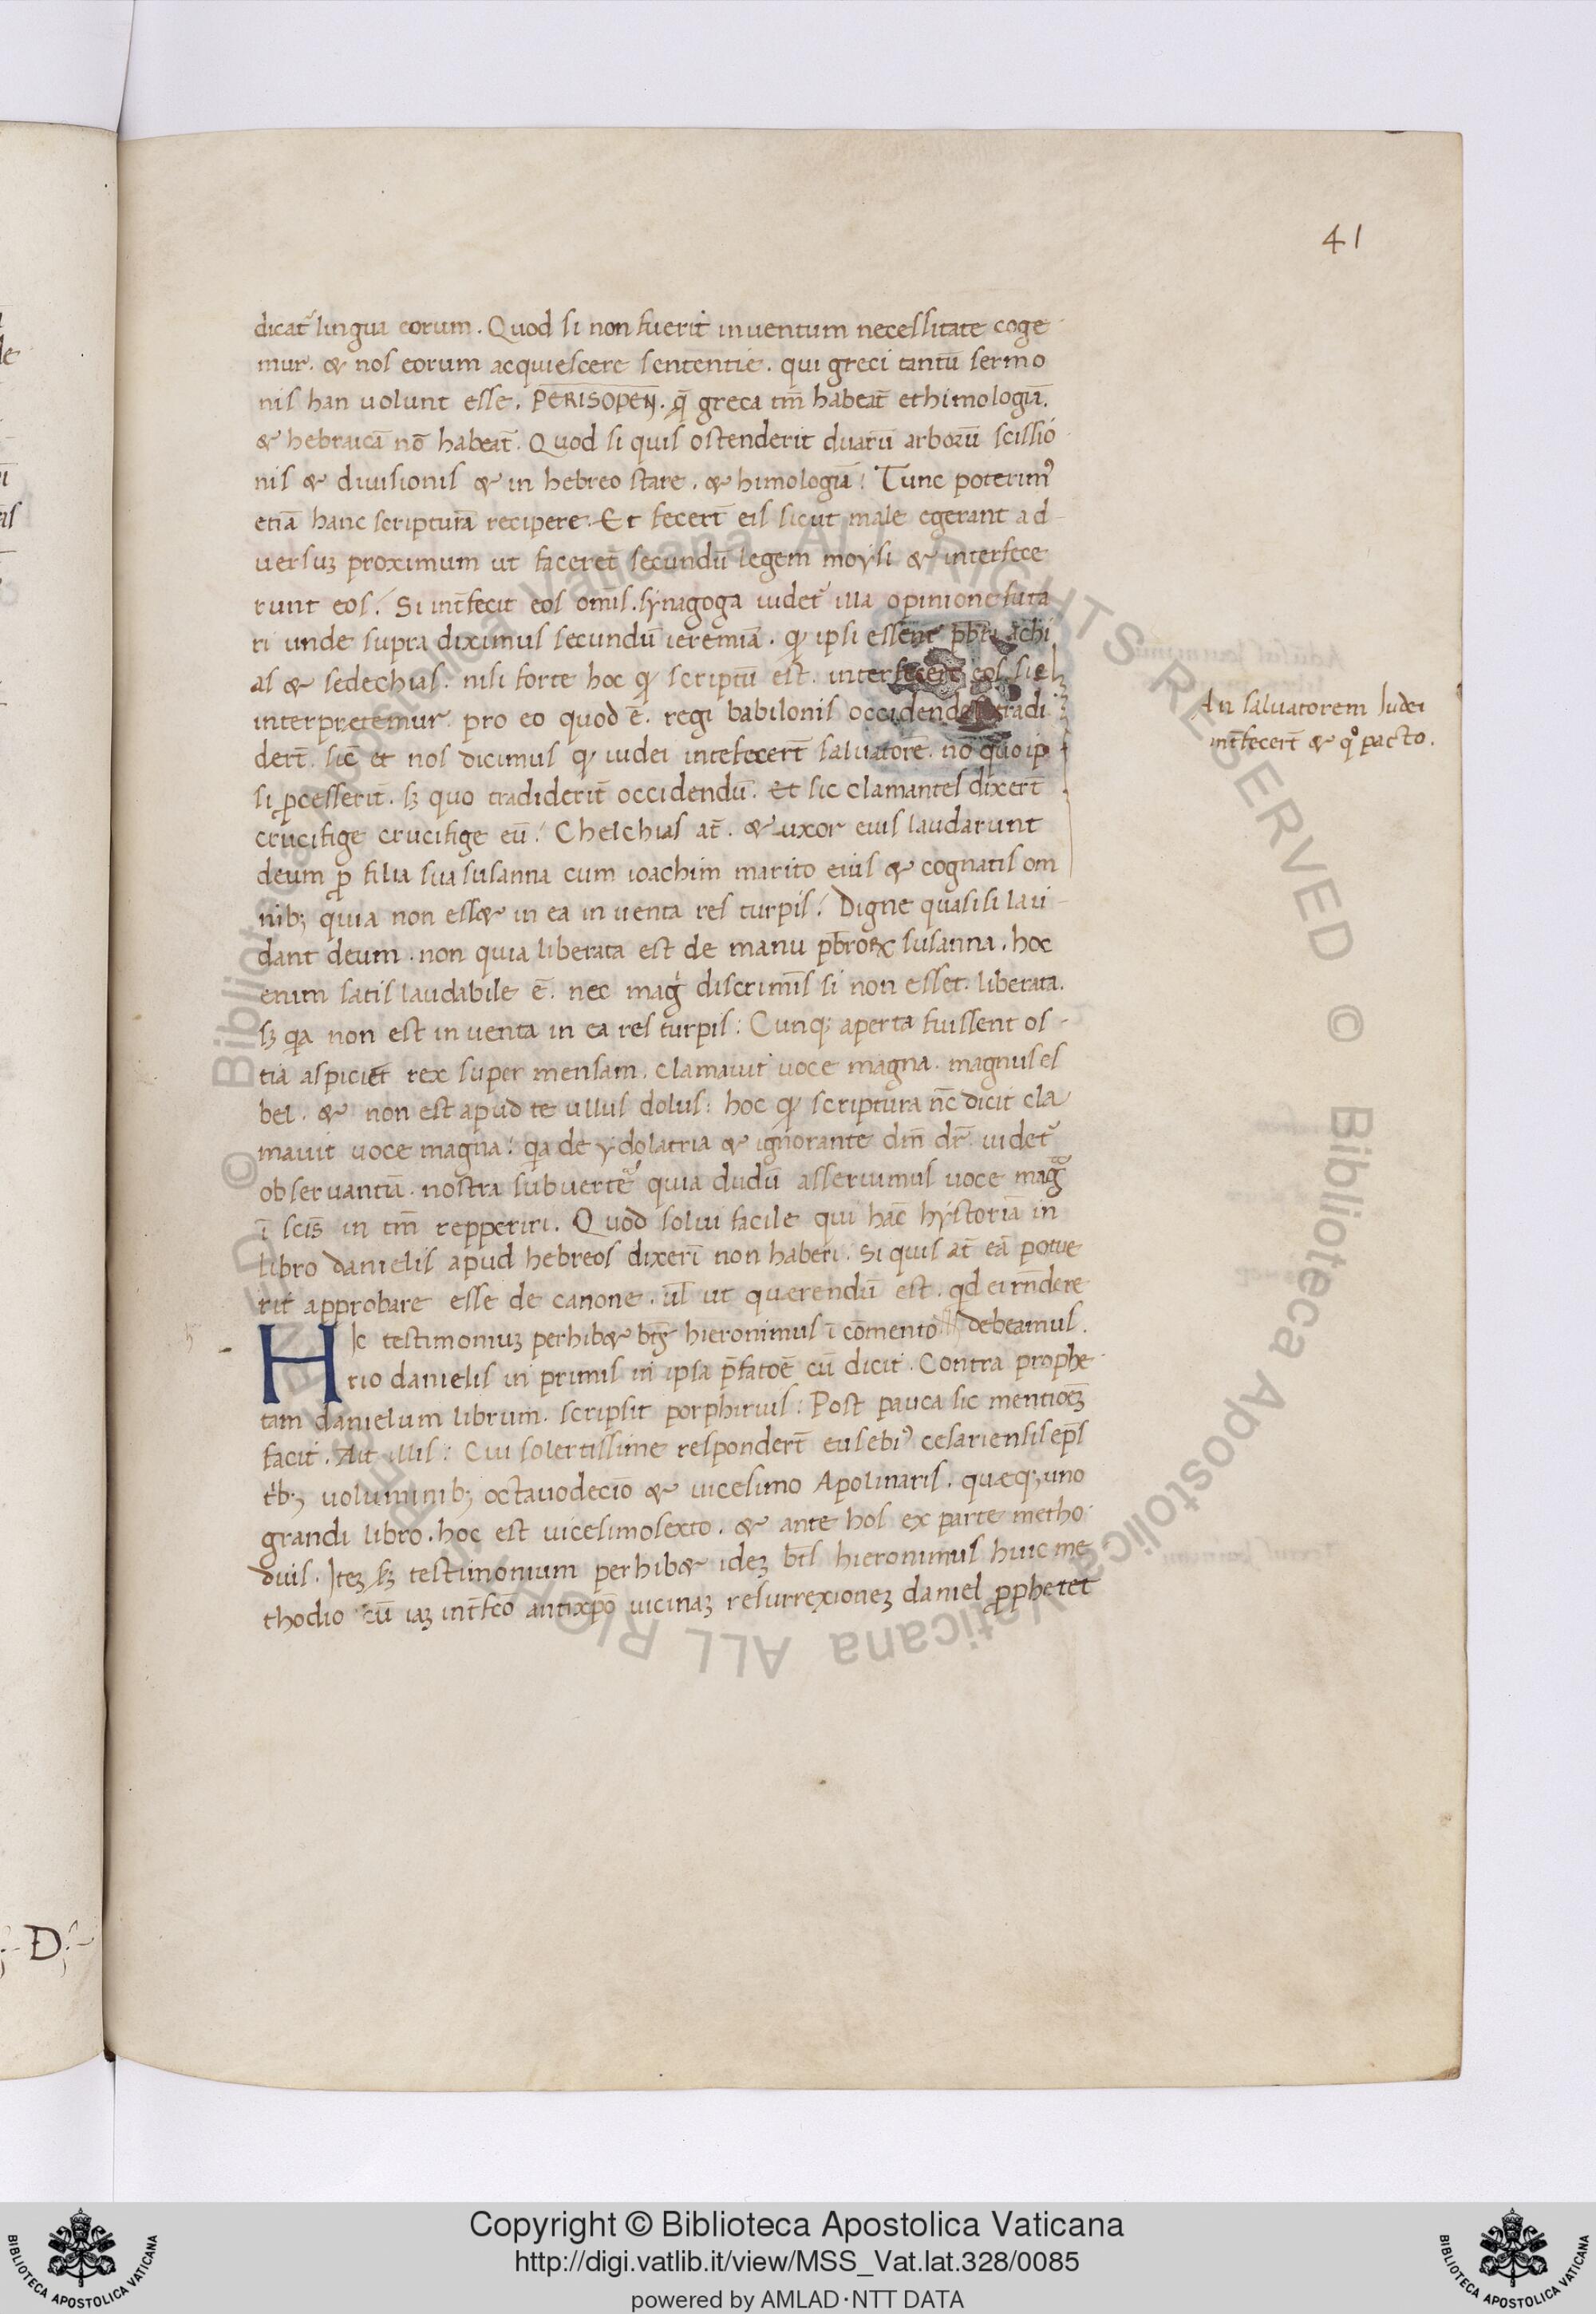 41
dicat᷑ lingua eorum. Quod si non fuerit inuentum necessitate coge
mur. & nos eorum acquiescere sententie. qui greci tantū sermo
nis han uolunt esse. PERISOPEN. q̄ greca tm̄ habeat̄ ethimologiā.
& hebraicā nō habeat̄. Quod si quis ostenderit duarū arborū scissio
nis & diuisionis & in hebreo stare. & himologiā: Tunc poterim᷒
etiā hanc scripturā recipere. Et fecert̄ eis sicut male egerant ad
uersuꝫ proximum ut faceret̄ secundū legem moysi & interfece
runt eos. Si int̄fecit eos om̄is synagoga uidet᷑ illa opinione futa
ri unde supra diximus secundū ieremiā. qꝫ ipsi essent pb̄ri achi
as & sedechias. nisi forte hoc qꝫ scriptū est. interfecert̄ eos. sic
interpretemur. pro eo quod ē. regi babilonis occidendos tradi
dert̄. sic̄ et nos dicimus qꝫ iudei intefecert̄ saluatorē. nō quo ip
si ꝑcesserit̄. sꝫ quo tradiderit̄ occidendū. Et sic clamantes dixert̄
crucifige crucifige eū: Chelchias at̄. & uxor eius laudarunt
deum ꝓ filia sua susanna cum ioachim marito eius & cognatis om
nibꝫ quia non ess& in ea inuenta res turpis: Digne quasi si lau
dant deum. non quia liberata est de manu pb̄roꝝ susanna. hoc
enim satis laudabile ē. nec mag̍ discrimīs si non esset liberata.
sꝫ qa non est inuenta in ea res turpis: Cunqꝫ aperta fuissent os
tia aspiciet rex super mensam. clamauit uoce magna. magnus es
bel. & non est apud te ullus dolus: hoc qꝫ scriptura nc̄ dicit cla
mauit uoce magna: qa de ydolatria & ignorante dm̄ dr̄. uidet᷑
obseruantū. nostra subuertē quia dudū asseruimus uoce magᷓ
ī scīs in tm̄ repperiri. Quod solui facile qui hāc hystoriā in
libro danielis apud hebreos dixerī non haberi. Si quis at̄ eā potue
rit approbare esse de canone. ul̄ ut querendū est. qd ei rn̄dere
debeamus.
HIc testimoniuꝫ perhib& bt̄s̄ hieronimus ī cōmento
rio danielis in primis in ipsa p̄fatōē cū dicit. Contra prophe
tam danielum librum. scripsit porphirius: Post pauca sic mentiōeꝫ
facit. Ait illis: Cui solertissime respondert̄ eusebi᷒ cesariensis ep̄s
t̍bꝫ uoluminibꝫ octauodecīo & uicesimo Apolinaris. quæqꝫ uno
grandi libro. hoc est uicesimosexto. & ante hos ex parte metho
dius. Iteꝫ sꝫ testimonium perhib& ideꝫ bt̄s hieronimus huic me
thodio cū iaꝫ int̄fcō antixpō uicinaꝫ resurrexioneꝫ daniel ꝓphetet
An saluatorem Iudei
int̄fecert̄ & qͦ pacto.
D
Copyright © Biblioteca Apostolica Vaticana
http://digi.vatlib.it/view/MSS_Vat.lat.328/0085
powered by AMLAD·NTT DATA
BIBLIOTECA APOSTOLICA VATICANA
BIBLIOTECA APOSTOLICA VATICANA
© Biblioteca Apostolica Vaticana ALL RIGHTS RESERVED